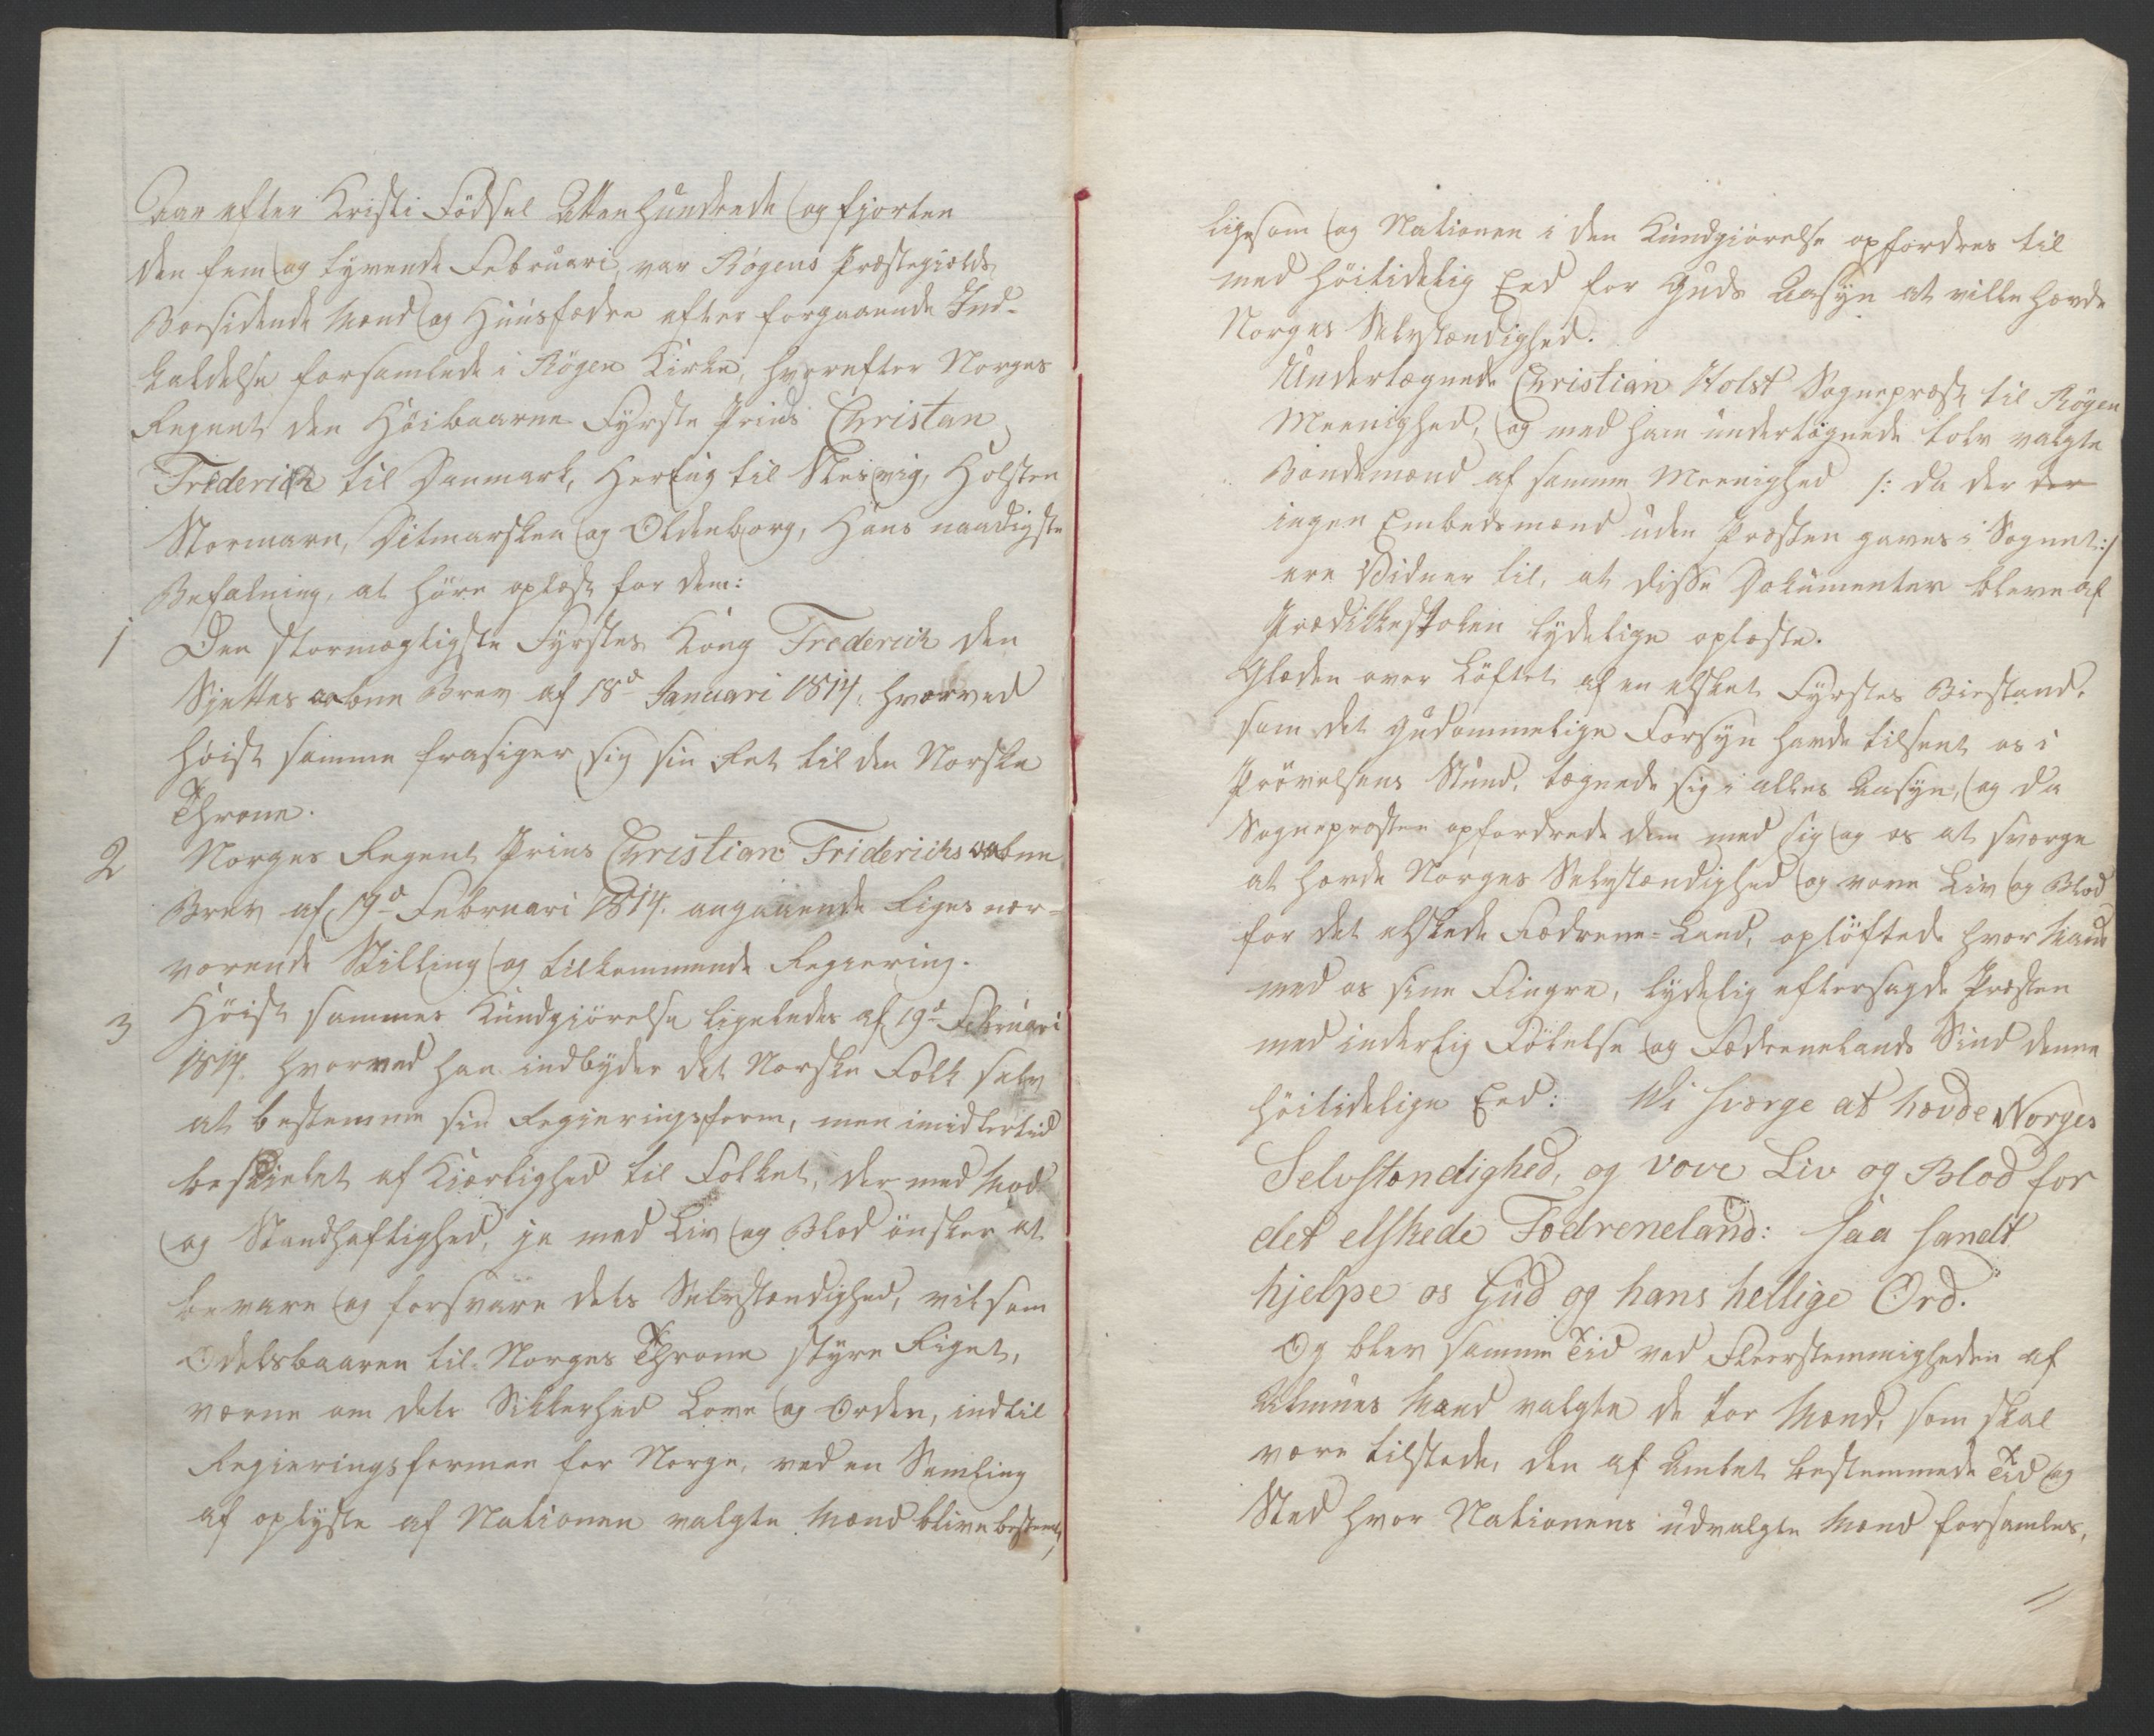 Aar efter Kristi Födsel Attenhundrede og fjorten
den fem og tyvende Februari, var Røgens Præstegjælds
Boesidende Mænd og Huusfædre efter forgaaende Ind-
kaldelse forsamlede i Røgen Kirke, hvorefter Norges
Regent den Höibaarne Fyrste Prinds Christan
Friderich til Danmark, Hertug til Slesvig, Holsten
Stormarn, Ditmarsken og Oldenborg, Hans naadigste
Befalning, at höre oplæst for dem:
1 Den stormægtigste Fyrstes Kong Frederich den
Sjettes aabne Brev af 18d Januari 1814. hvorved
höist samme frasiger sig sin Ret til den Norske
Throne.
2 Norges Regent Prins Christian Friderichs aabne
Brev af 19d Februari 1814. angaaende Riges nær-
værende Stilling og tilkommende Regiering.
3 Höist sammes Kundgiörelse ligeledes af 19d Februari
1814. hvorved han indbyder det Norske Folk selv
at bestemme sin Regieringsform, men imidlertid
besjælet af Kiærlighed til Folket, der med Mod
og Standhaftighed, ja med Liv og Blod önsker at
bevare og forsvare dets Selvstændighed, vil som
Odelsbaaren til Norges Throne styre Riget,
værne om dets Sikkerhed Love og Orden, indtil
Regieringsformen for Norge, ved en Samling
af oplyste af Nationen valgte Mænd blive bestemt,
ligesom og Nationen i den Kundgiörelse opfordres til
med höitidelig Eed for Guds Aasyn at ville hævde
Norges Selvstændighed.
Undertægnede Christian Holst Sognepræst til Røgen
Meenighed, og med ham undertegnede tolv valgte
Bondemænd af samme Meenighed /: da der der
ingen Embedsmænd uden Præsten gaves i Sognet:/
ere Vidner til, at disse Dokumenter bleve af
Prædikkestolen lydelige oplæste.
Glæden over Löftet af en elsket Fyrstes Biestand,
som det gudommelige Forsyn havde tilsent os i
Prövelsens Stund, tægnede sig i alles Aasyn, og da
Sognepræsten opfordrede dem med sig og os at sværge
at hævde Norges Selvstændighed og vove Liv og Blod
for det elskede Fædrene-Land, oplöftede hver Mand
med os sine Fingre, lydelig eftersagde Præsten
med inderlig Fölelse og Fædrenelands Sind denne
höitidelige Eed: Vi sværge at hævde Norges
Selvstændighed, og vove Liv og Blod for
det elskede Fædreneland: saa sandt
hjelpe os Gud og hans hellige Ord.
Og blev samme Tid ved Fleerstemmigheden af
Almues Mænd valgte de tov Mænd, som skal
være tilstede, den af Amtet bestemmede Tid og
Sted hvor Nationens udvalgte Mænd forsamles,
//